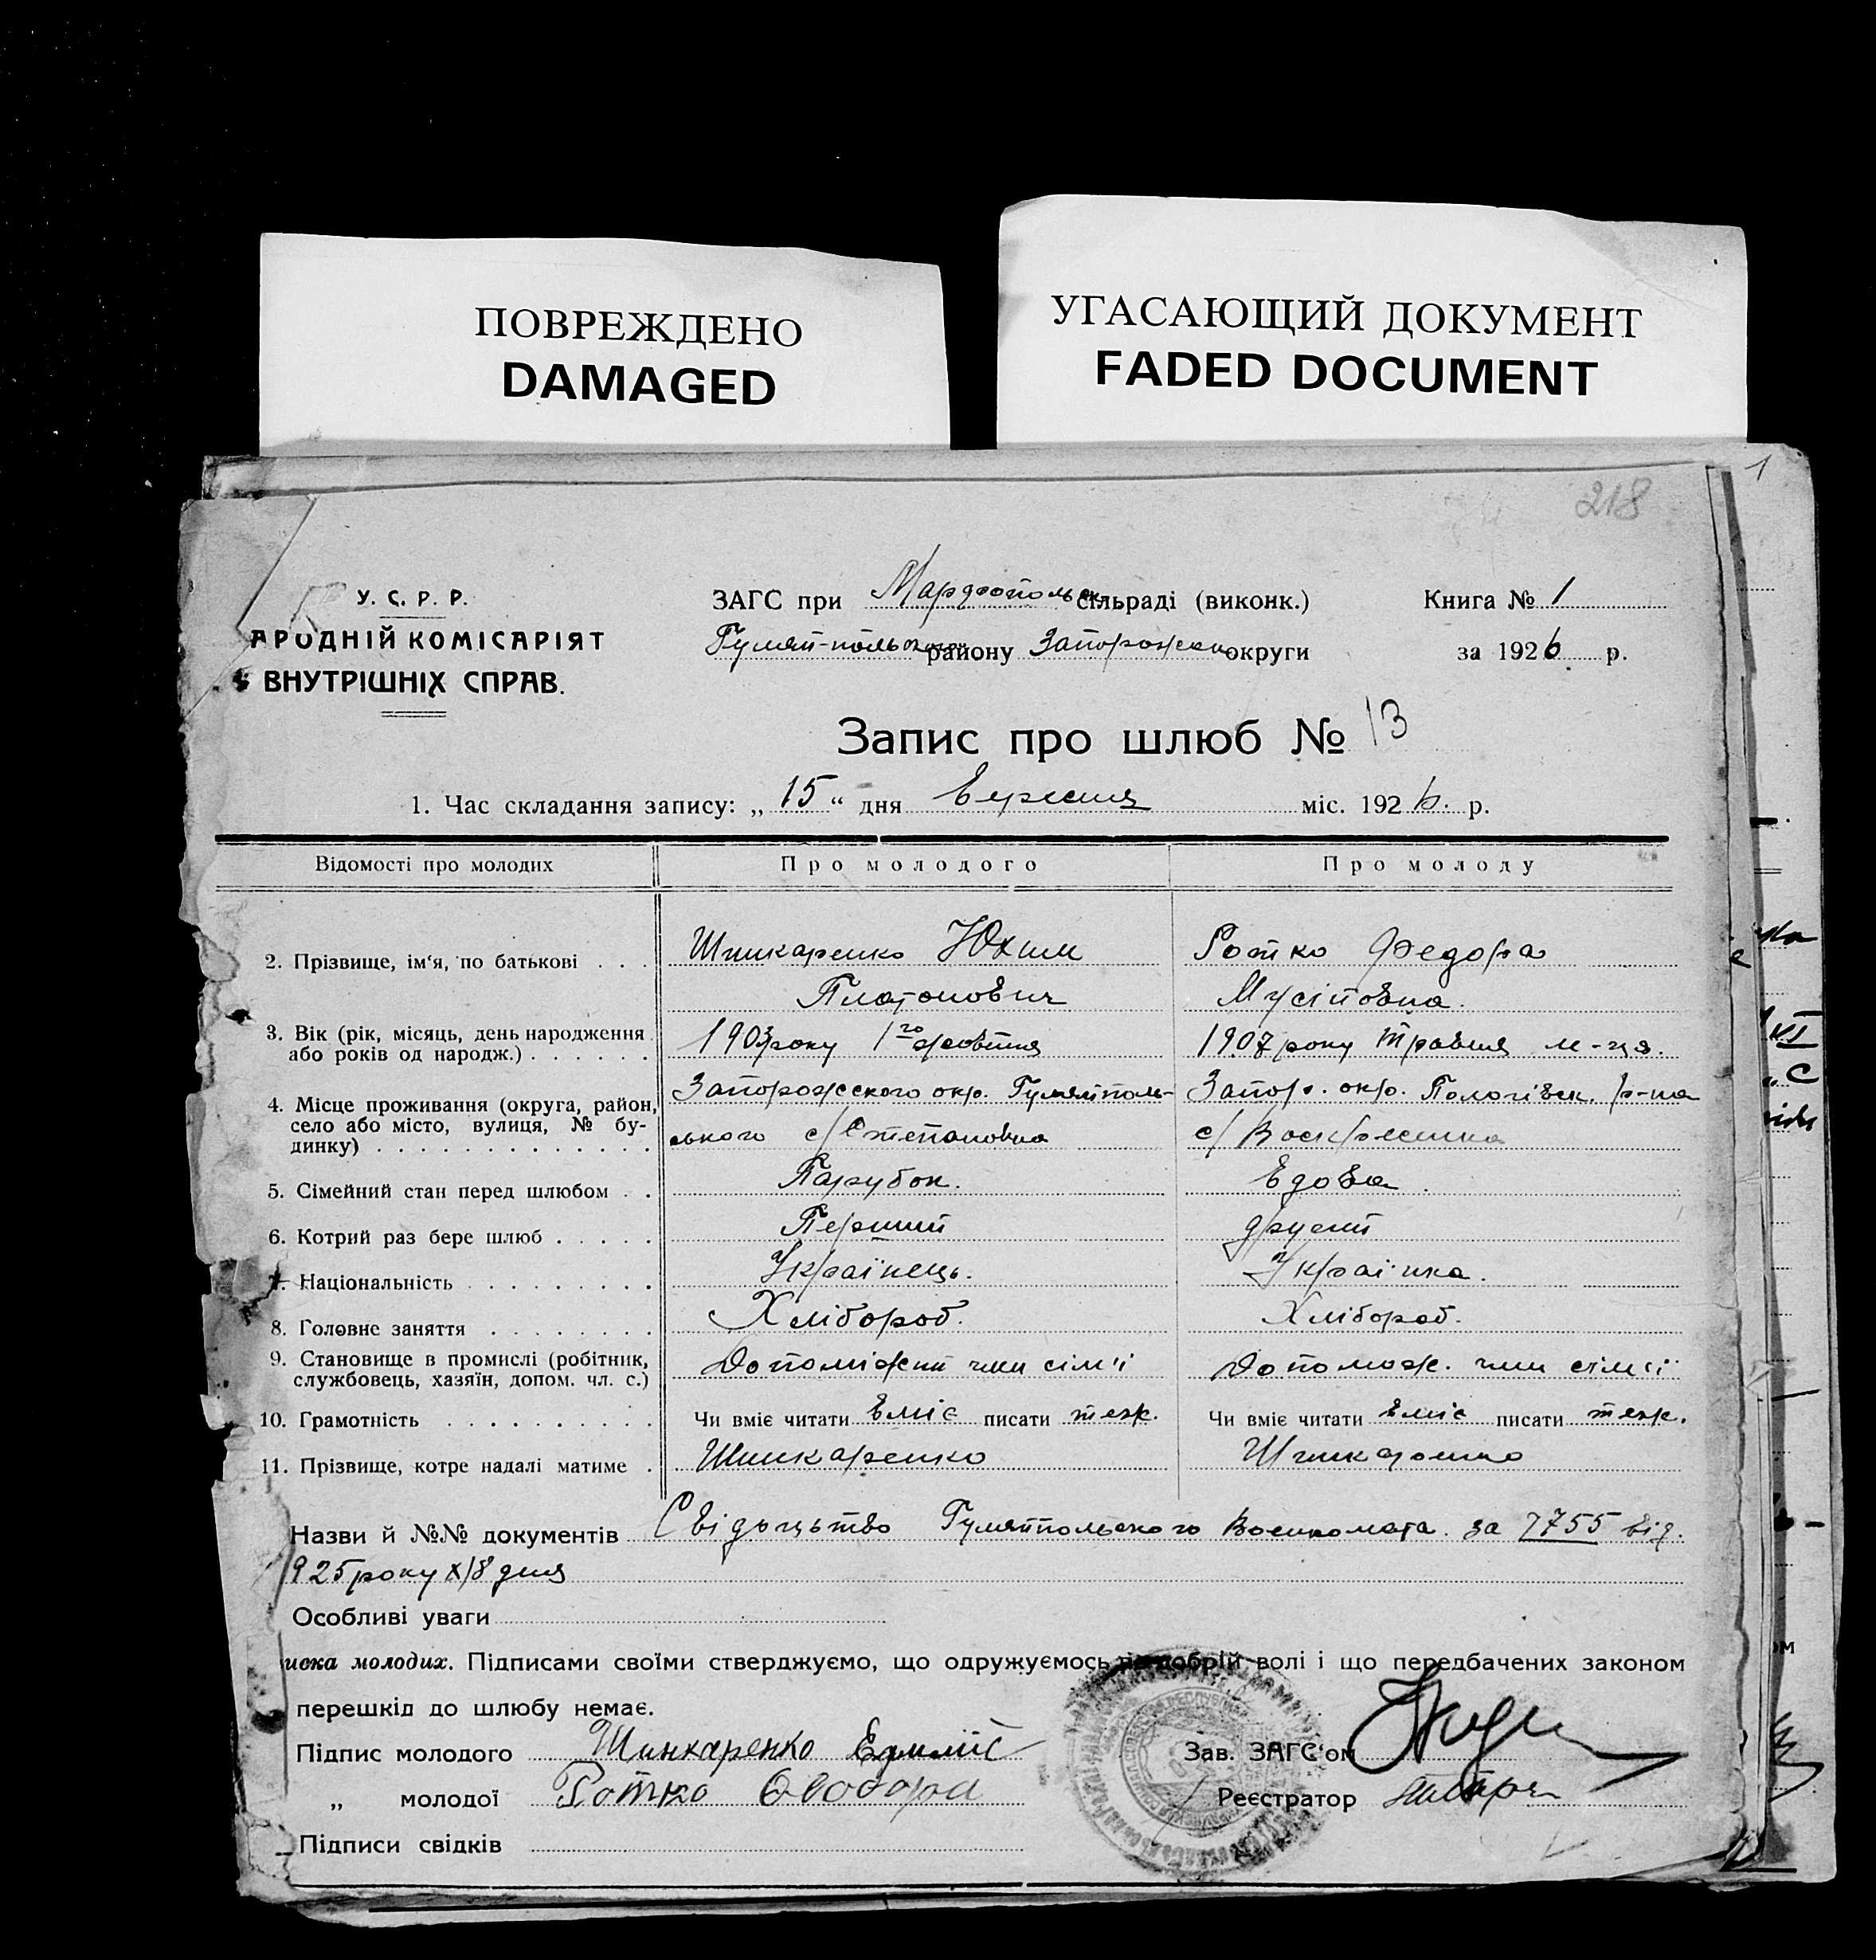 ПОВРЕЖДЕНО
DAMAGED
УГАСАЮЩИЙ ДОКУМЕНТ
FADED DOCUMENT
1
218
У. С. Р. Р.
АРОДНІЙ КОМІСАРІЯТ
ВНУТРІШНІХ СПРАВ.
ЗАГС при Марфопольск сільраді (виконк.)
Гуляй-польського району Запорожск округи
Книга № 1
за 1926 р.
Запис про шлюб № 13
1. Час складання запису: „ 15 “ дня Вересня міс. 1926. р.
Відомості про молодих Про молодого Про молоду
2. Прізвище, ім‘я, по батькові . . . Шинкаренко Юхим Ротко Федора
Платонович Мусіївна.
3. Вік (рік, місяць, день народження або років од народж.) . . . . . . 1903 року 1го жовтня 1907 року Травня м-ця.
4. Місце проживання (округа, район, село або місто, вулиця, № будинку) . . . . . . . . . . . . . Запорожского окр. Гуляйполь- Запор. окр. Пологівск. р-на
ського с/Степановка с/Воскресенка
5. Сімейний стан перед шлюбом . . Парубок. Вдова.
6. Котрий раз бере шлюб . . . . . Перший другий
7. Національність . . . . . . . . . Українець. Українка.
8. Головне заняття . . . . . . . . Хлібороб. Хлібороб.
9. Становище в промислі (робітник, службовець, хазяїн, допом. чл. с.) Допоміжний член сім'ї Допомож. член сім'ї
10. Грамотність . . . . . . . . . . Чи вміє читати вміє писати теж. Чи вміє читати вміє писати теж.
11. Прізвище, котре надалі матиме . Шинкаренко Шинкаренко
Назви й №№ документів Свідоцьтво Гуляйпольского Военкомата за 7755 від.
1925 року X/8 дня
Особливі уваги
иска молодих. Підписами своїми стверджуємо, що одружуємось по добрій волі і що передбачених законом
перешкід до шлюбу немає.
Підпис молодого Шинкаренко Зав. ЗАГС‘ом
„ молодої Ротко Реєстратор
Підписи свідків